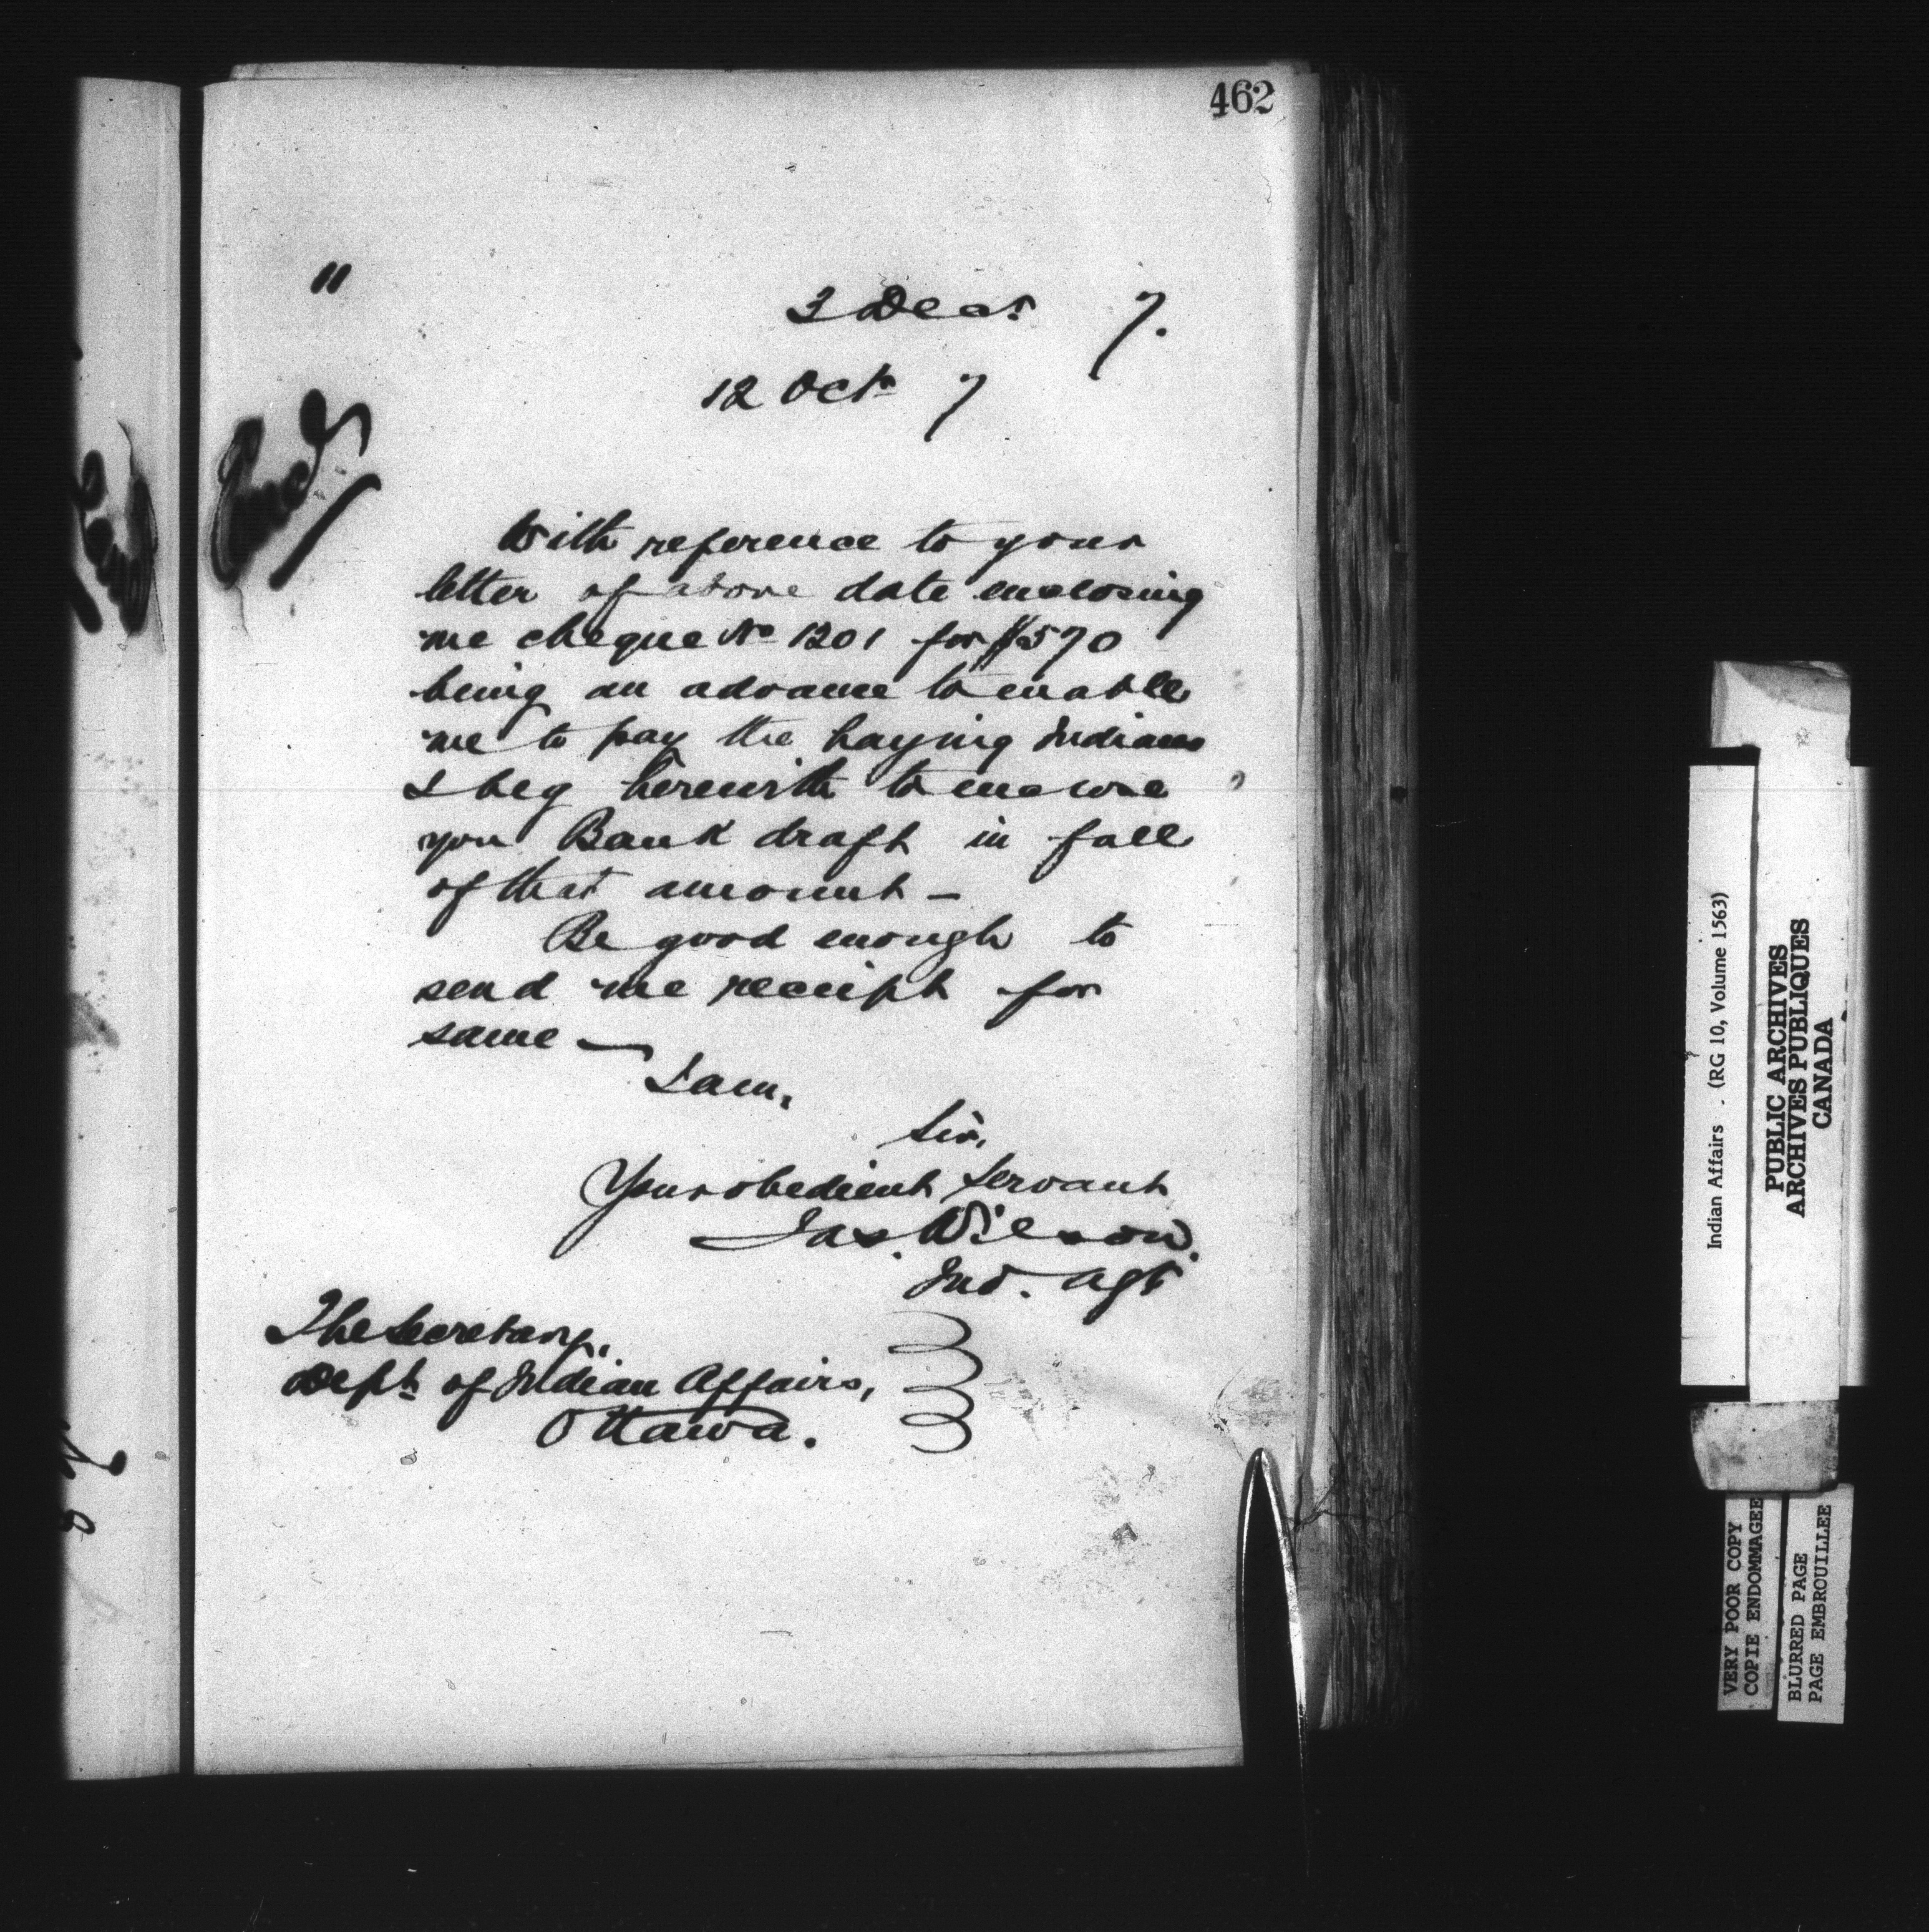 462
"
3 Decr 7.
12 Octr 7
Encl
With reference to your
letter of above date enclosing
me cheque No 1201 for $570
being an advance to enable
me to pay the haying Indians
I beg herewith to enclose
you Bank draft in full
of that amount —
Be good enough to
send me receipt for
same —
I am,
Sir,
Your obedient servant
Jas. Wilson.
Ind. Agt
The Secretary,
Dept. of Indian Affairs,
Ottawa.
Indian Affairs . (RG 10, Volume 1563)
PUBLIC ARCHIVES
ARCHIVES PUBLIQUES
CANADA
VERY POOR COPY
COPIE ENDOMMAGEE
BLURRED PAGE
PAGE EMBROUILLEE